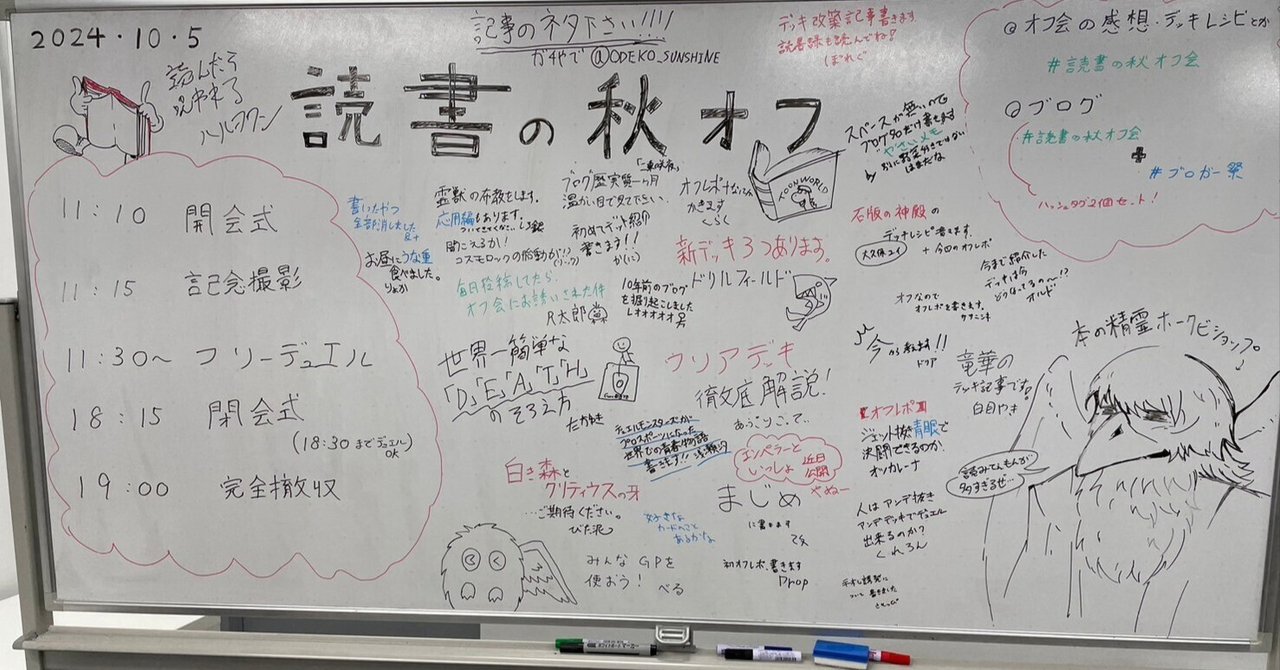 2024・10・5
記事のネタ下さい!!!!
がやで @ODEKO_SUNSHINE
デッキ改築記事書きます
読書録も読んでね!
ぽれぐ
読書の秋オフ
@オフ会の感想・デッキレシピとか
#読書の秋オフ会
@ブログ
#読書の秋オフ会
+
#ブロガー祭
ハッシュタグ2個セット!
11:10 開会式
11:15 記念撮影
11:30〜 フリーデュエル
18:15 閉会式
(18:30までデュエルOK)
19:00 完全撤収
書いたやつ
全部消しました
お昼にうな重
食べました。
りょか
霊獣の布教をします。
応用編もあります。
聞こえるか!
コスモロックの胎動が!?
毎日投稿してたら、
オフ会にお誘いされた件
R太郎
ブログ歴実質一ヶ月
温かい目で見て下さい。
初めてデッキ紹介
書きます!!
10年前のブログ
を掘り起こしました
レオオオオ男
オフレポナなつくん
かきます
くらく
TOONWORLD
スペースが無いので
やさいメモ
新デッキ3つあります。
ドリルフィールド
石版の神殿の
デッキレシピ書きます。
+今回のオフレポ
大久保ユイ
今まで紹介した
デッキは今
どうなってるの〜!?
オルド
オフなので
オフレポを書きます。
世界一簡単な
「D」「E」「A」「T」「H」
のそろえ方
たかゆき
ウリアデッキ
徹底解説!
あっこりこって…
今から教えます!!
ドクア
竜華の
デッキ記事です。
白目やき
本の精霊ホークビショップ。
読みてぇもんが
多すぎるぜ…
デュエルモンスターズが
プロスポーツになった
世界での青春物語
書きます!!
エンペラーと
いっしょ
近日
公開
やぬー
オフレポ
ジェット抜き青眼で
決闘できるのか。
オッカレーナ
白き森と
クリティウスの牙
…ご期待ください。
ぴた泥
まじめ
に書きます
好きな
カードのこと
あるかな
人はアンデ抜き
アンデデッキでデュエル
出来るのか?
くれろん
みんなGPを
使おう! べる
初オフレポ、書きます
Drop